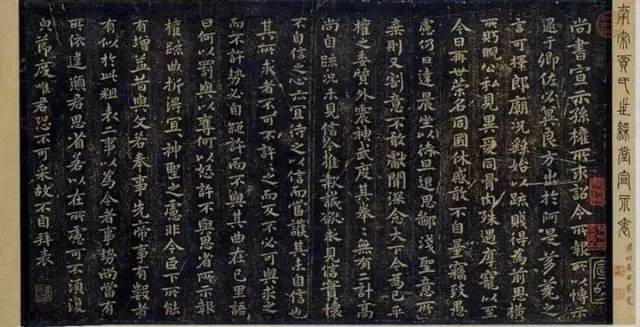 南宋賈氏世綵堂宣示表
尚書宣示孫權所求詔令所報所以博示
逮于卿佐必冀良方出於阿是芻蕘之
言可擇郎廟況繇始以疏賤得為前恩橫
所盻睨公私見異愛同骨肉殊遇厚寵以至
今日再世榮名同國休慼敢不自量竊致愚
慮仍日達晨坐以待旦退思鄙淺聖意所
棄則又割意不敢獻聞深念天下今為已平
權之委質外震神武度其拳拳無有二計高
尚自疏況未見信今推款誠欲求見信實懷
不自信之心亦宜待之以信而當護其未自信也
其所求者不可不許許之而反不必可與求之
而不許勢必自絕許而不與其曲在己里語
曰何以罰與以奪何以怒許不與思省所示報
權疏曲折得宜宜神聖之慮非今臣下所能
有增益昔與文若奉事先帝事有數者
有似於此粗表二事以為今者事勢尚當有
所依違願君思省若以在所慮可不須復
白節度唯君恐不可采故不自拜表